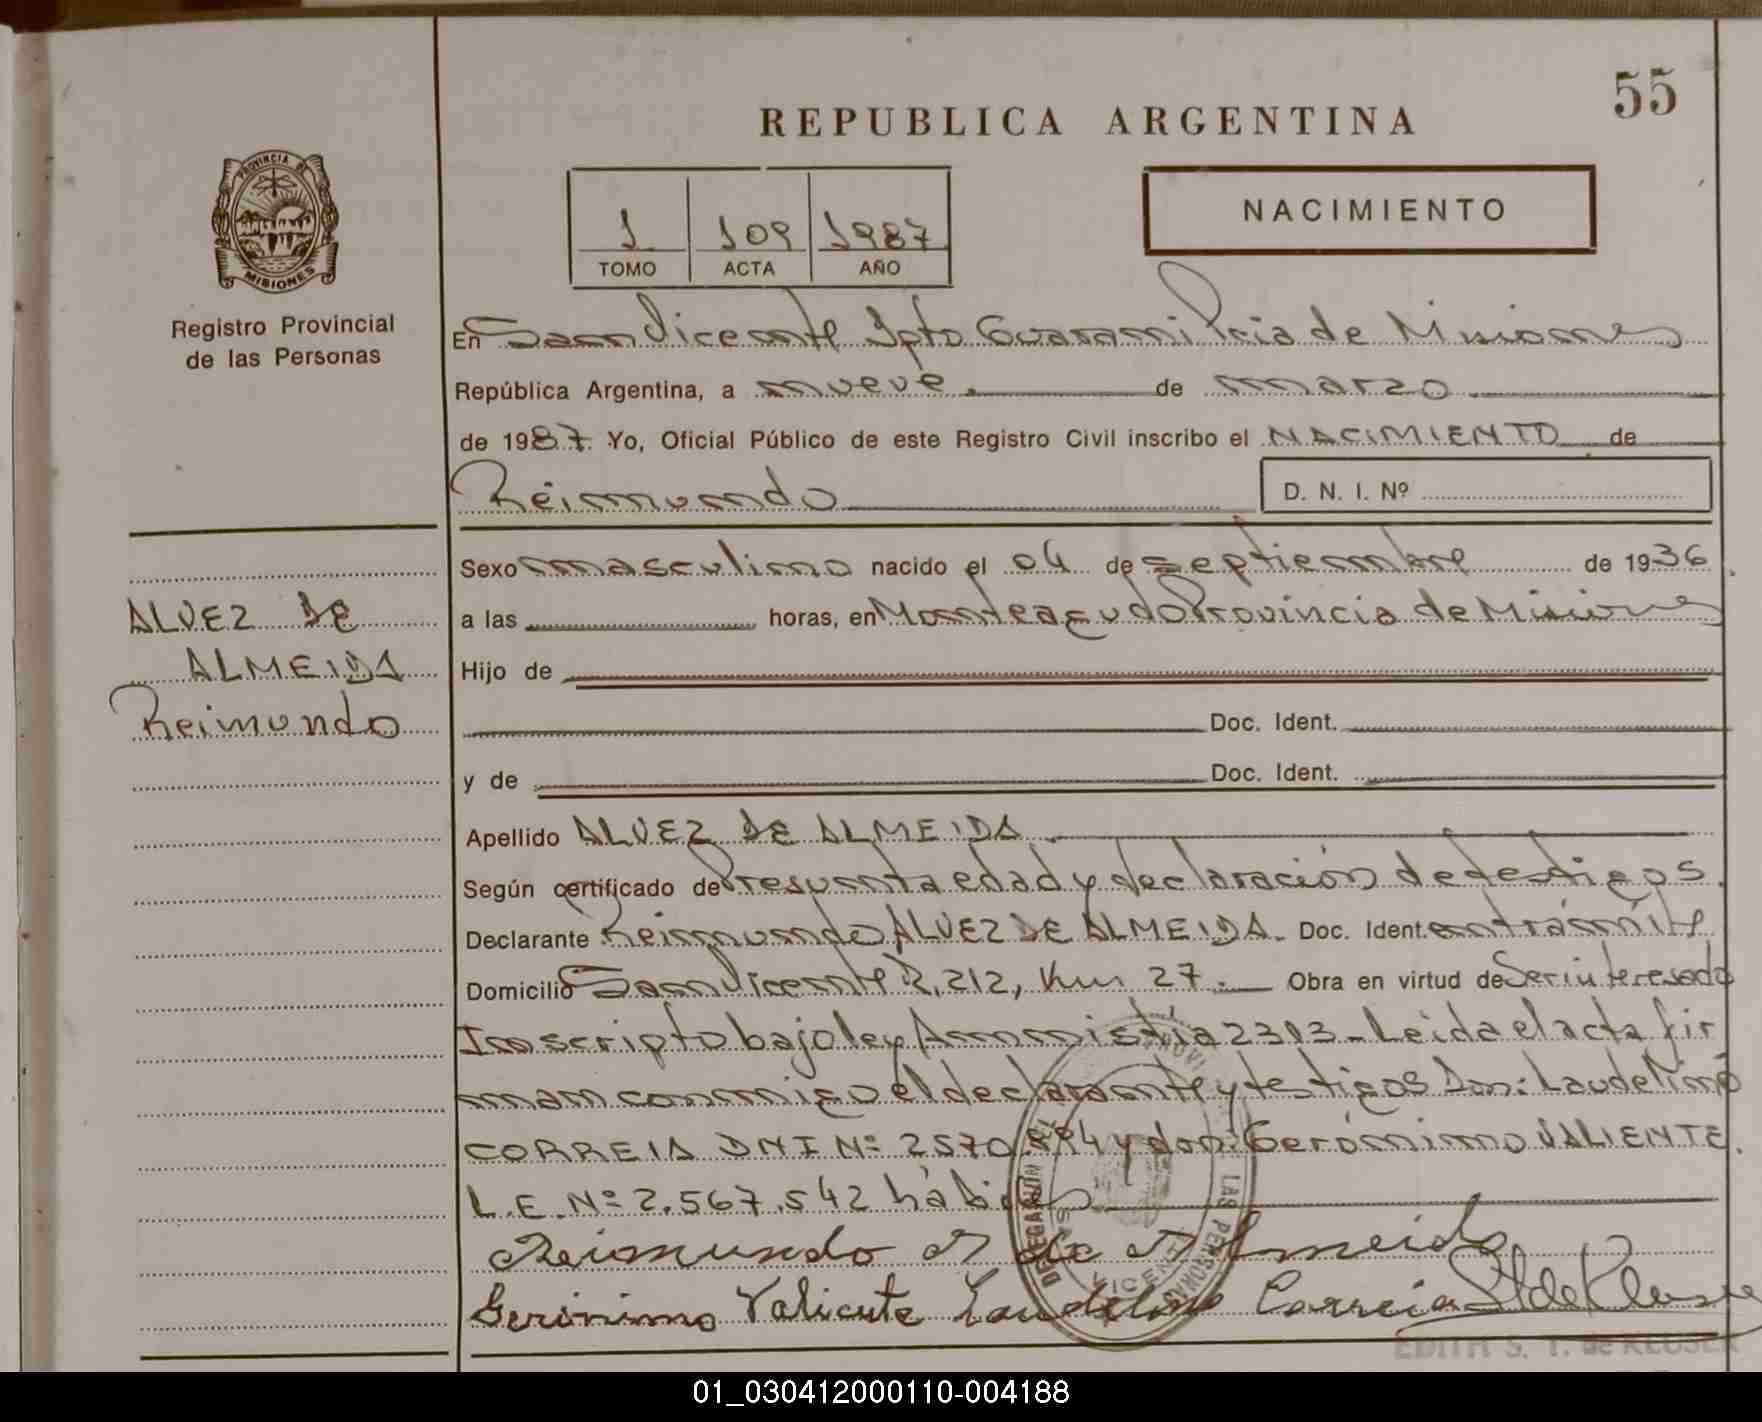 55
REPUBLICA ARGENTINA
PROVINCIA DE
MISIONES
Registro Provincial
de las Personas
1 109 1987
TOMO ACTA AÑO
NACIMIENTO
En San Vicente Dpto Guarani Pcia de Misiones
República Argentina, a nueve. de marzo
de 1987. Yo, Oficial Público de este Registro Civil inscribo el NACIMIENTO de
Reimundo
D. N. I. Nº
Sexo masculino nacido el 04 de septiembre de 1936
a las horas, en Monteagudo Provincia de Misiones
ALVEZ DE
ALMEIDA
Reimundo
Hijo de
Doc. Ident.
y de Doc. Ident.
Apellido ALVEZ DE ALMEIDA
Según certificado de Presunta edad y declaración de testigos.
Declarante Reimundo ALVEZ DE ALMEIDA. Doc. Ident. en trámite
Domicilio San Vicente R. 212, Km 27. Obra en virtud de Ser interesado
Inscripto bajo ley Amnistía 2313 - Leida el acta fir
man conmigo el declarante y testigos Don: Laudelino
CORREIA DNI Nº 2570. y don: Gerónimo VALIENTE.
L.E. Nº 2.567.542 hábiles
Reimundo A de Almeida
Gerónimo Valiente Laudelino Correia
EDITH S. T. de KLUSER
01_030412000110-004188